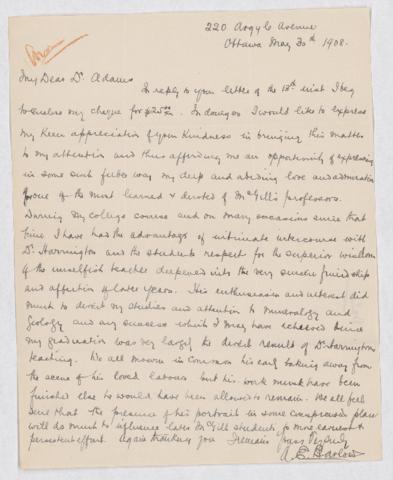 220 Argyle Avenue
Ottawa May 30th 1908.
My Dear Dr Adams
In reply to your letter of the 13th inst I beg
to enclose my cheque for $25.00. In doing so I would like to express
my keen appreciation of your kindness in bringing this matter
to my attention and thus affording me an opportunity of expressing
in some such feeble way my deep and abiding love and admiration
for one of the most learned & devoted of McGill's professors.
During my college course and on many occasions since that
time I have had the advantage of intimate intercourse with
Dr Harrington and the students respect for the superior wisdom
of the unselfish teacher deepened into the very sincere friendship
and affection of later years. His enthusiasm and interest did
much to direct my studies and attention to mineralogy and
Geology and any success which I may have achieved since
my graduation was very largely the direct result of Dr Harrington's
teaching. We all mourn in common his early taking away from
the scene of his loved labours but his work must have been
finished else he would have been allowed to remain. We all feel
sure that the presence of his portrait in some conspicuous place
will do much to influence later McGill students to more earnest &
persistent effort. Again thanking you I remain Yours Sincerely
A. E. Barlow